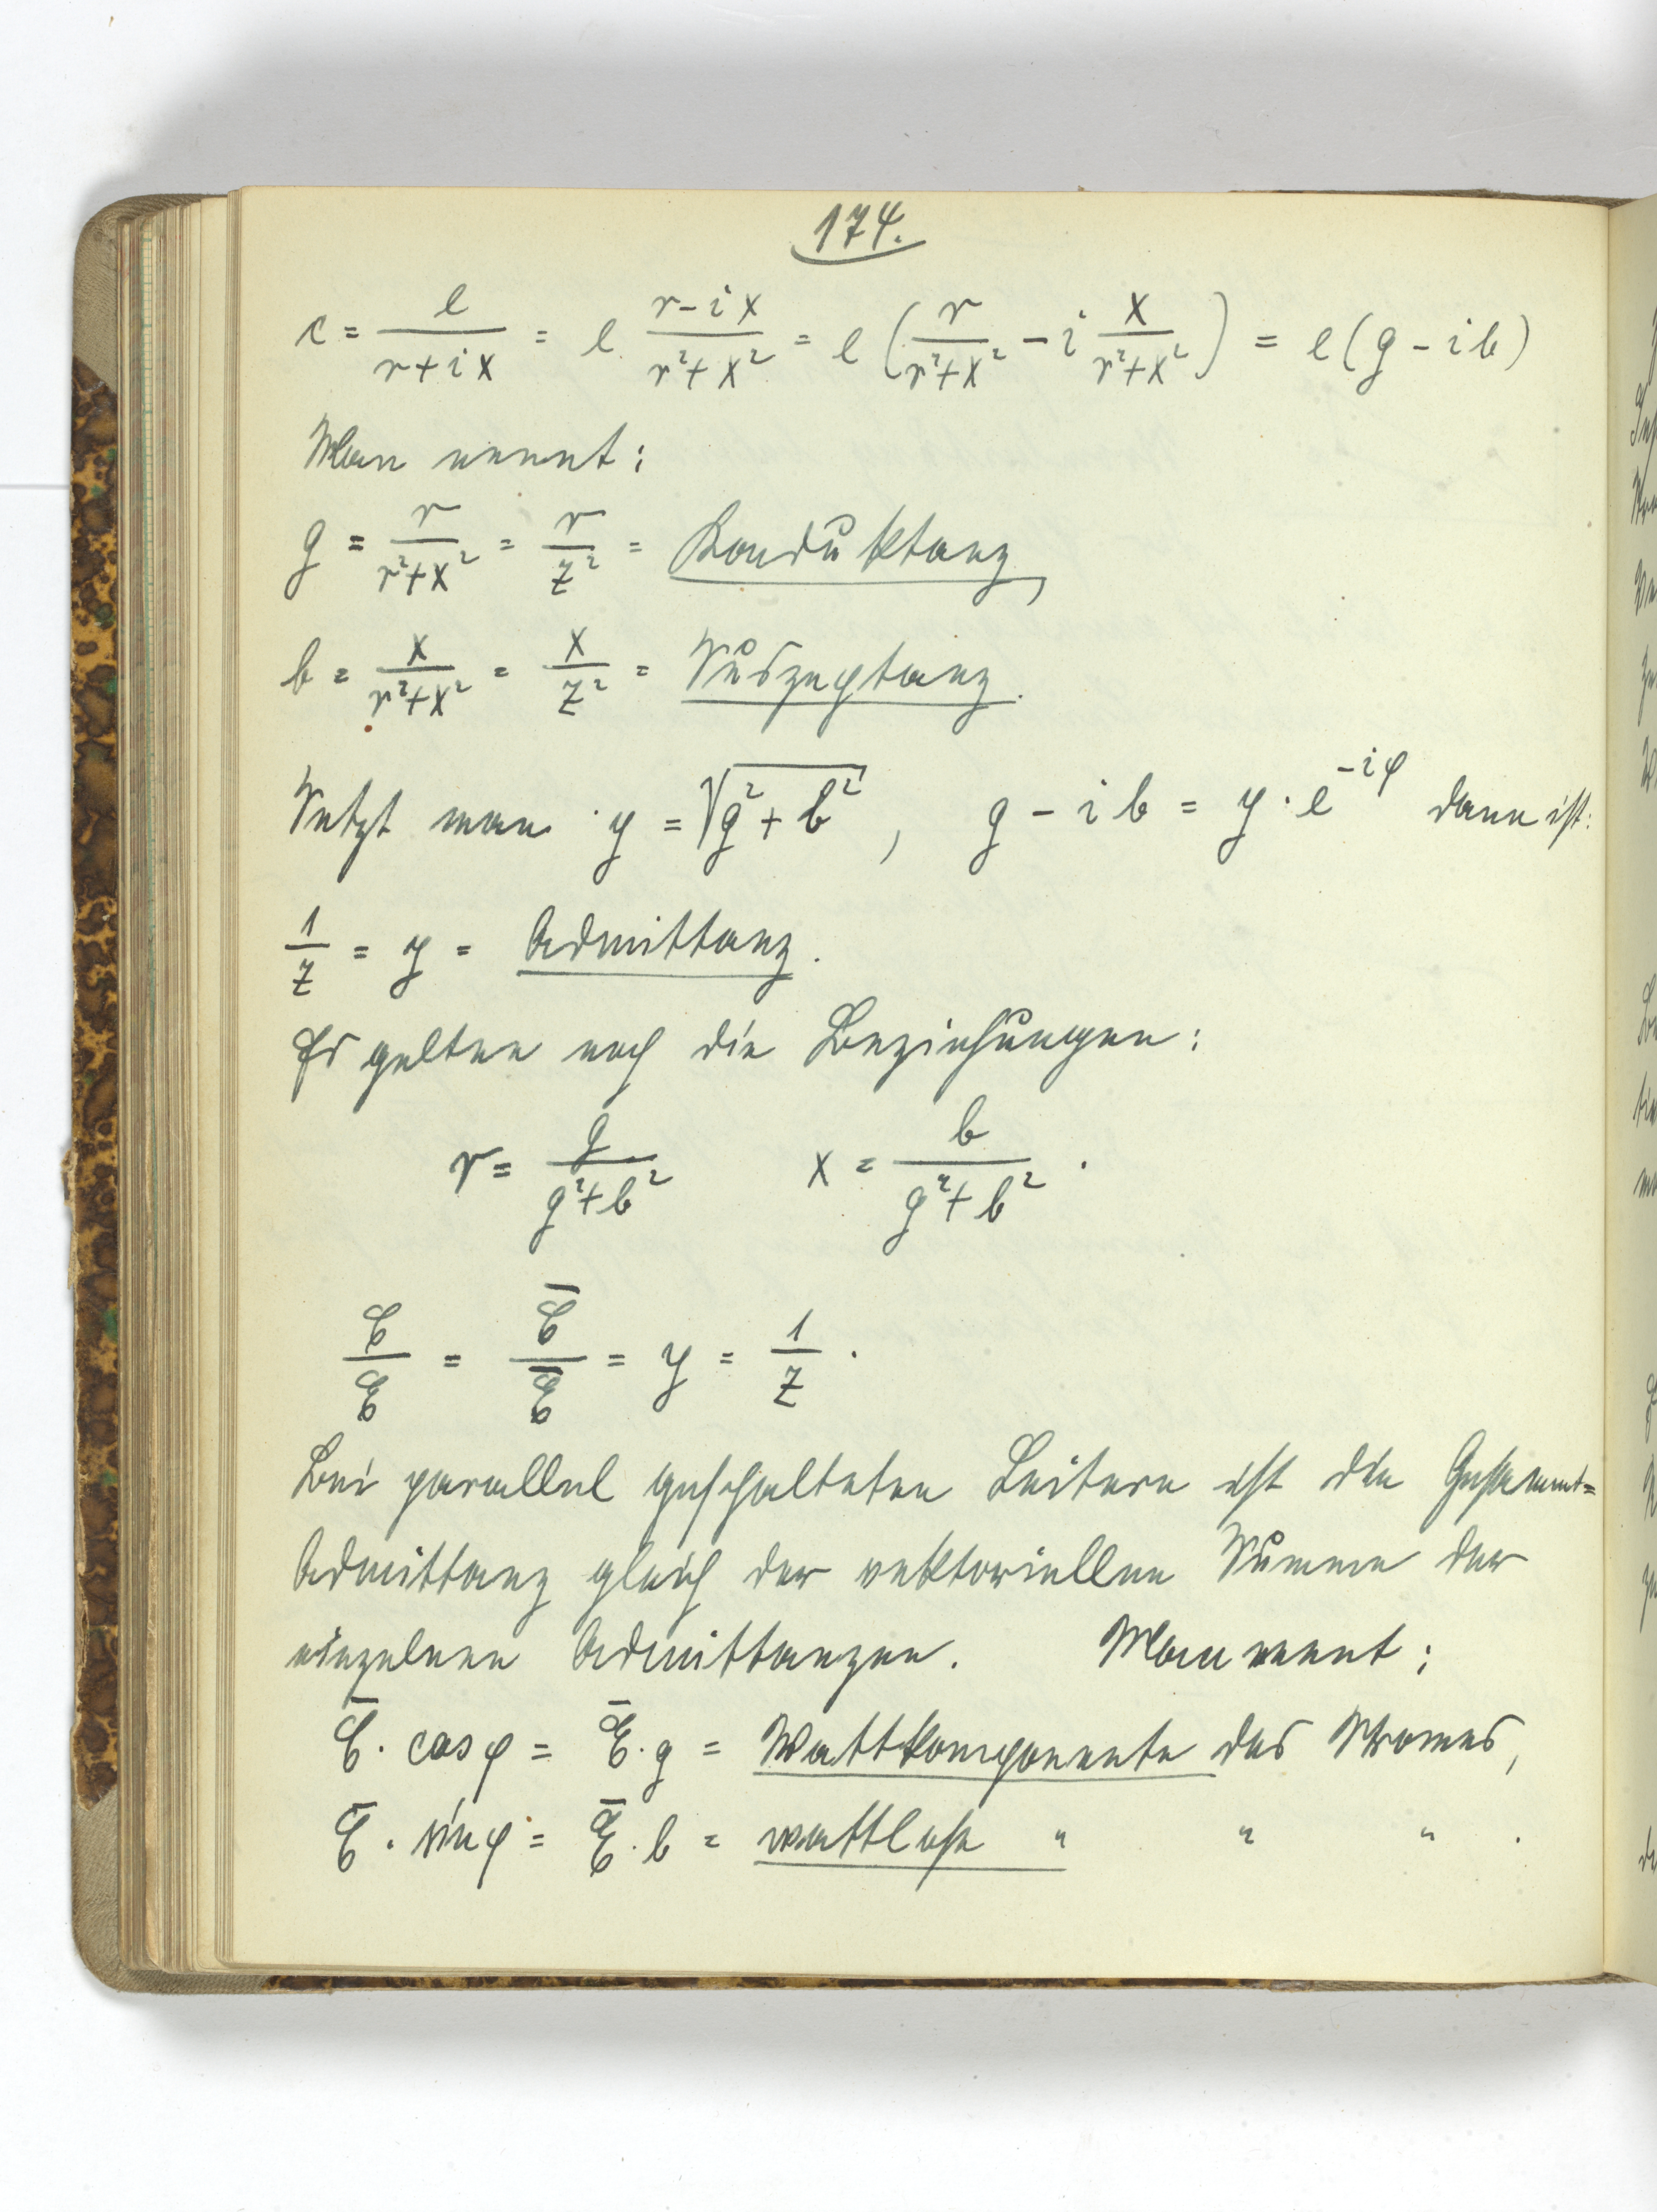 174.
c = e/(r+ix) = e · (r-ix)/(r²+x²) = e (r/(r²+x²) - i x/(r²+x²)) = e(g - ib)
Man nennt:
g = r/(r²+x²) = r/z² = Konduktanz,
b = x/(r²+x²) = x/z² = Suszeptanz.
Setzt man y = √(g²+b²), g - ib = y·e^(-iφ) dann ist:
1/z = y = Admittanz.
Es gelten noch die Beziehungen:
r = g/(g²+b²) x = b/(g²+b²).
ℭ/𝔈 = ℭ̄/𝔈̄ = y = 1/z.
Bei parallel geschalteten Leitern ist die Gesammt=
Admittanz gleich der vektoriellen Summe der
einzelnen Admittanzen. Man nennt:
ℭ̄ · cos φ = 𝔈̄ · g = Wattkomponente des Stromes,
ℭ̄ · sin φ = 𝔈̄ · b = wattlose " " " .